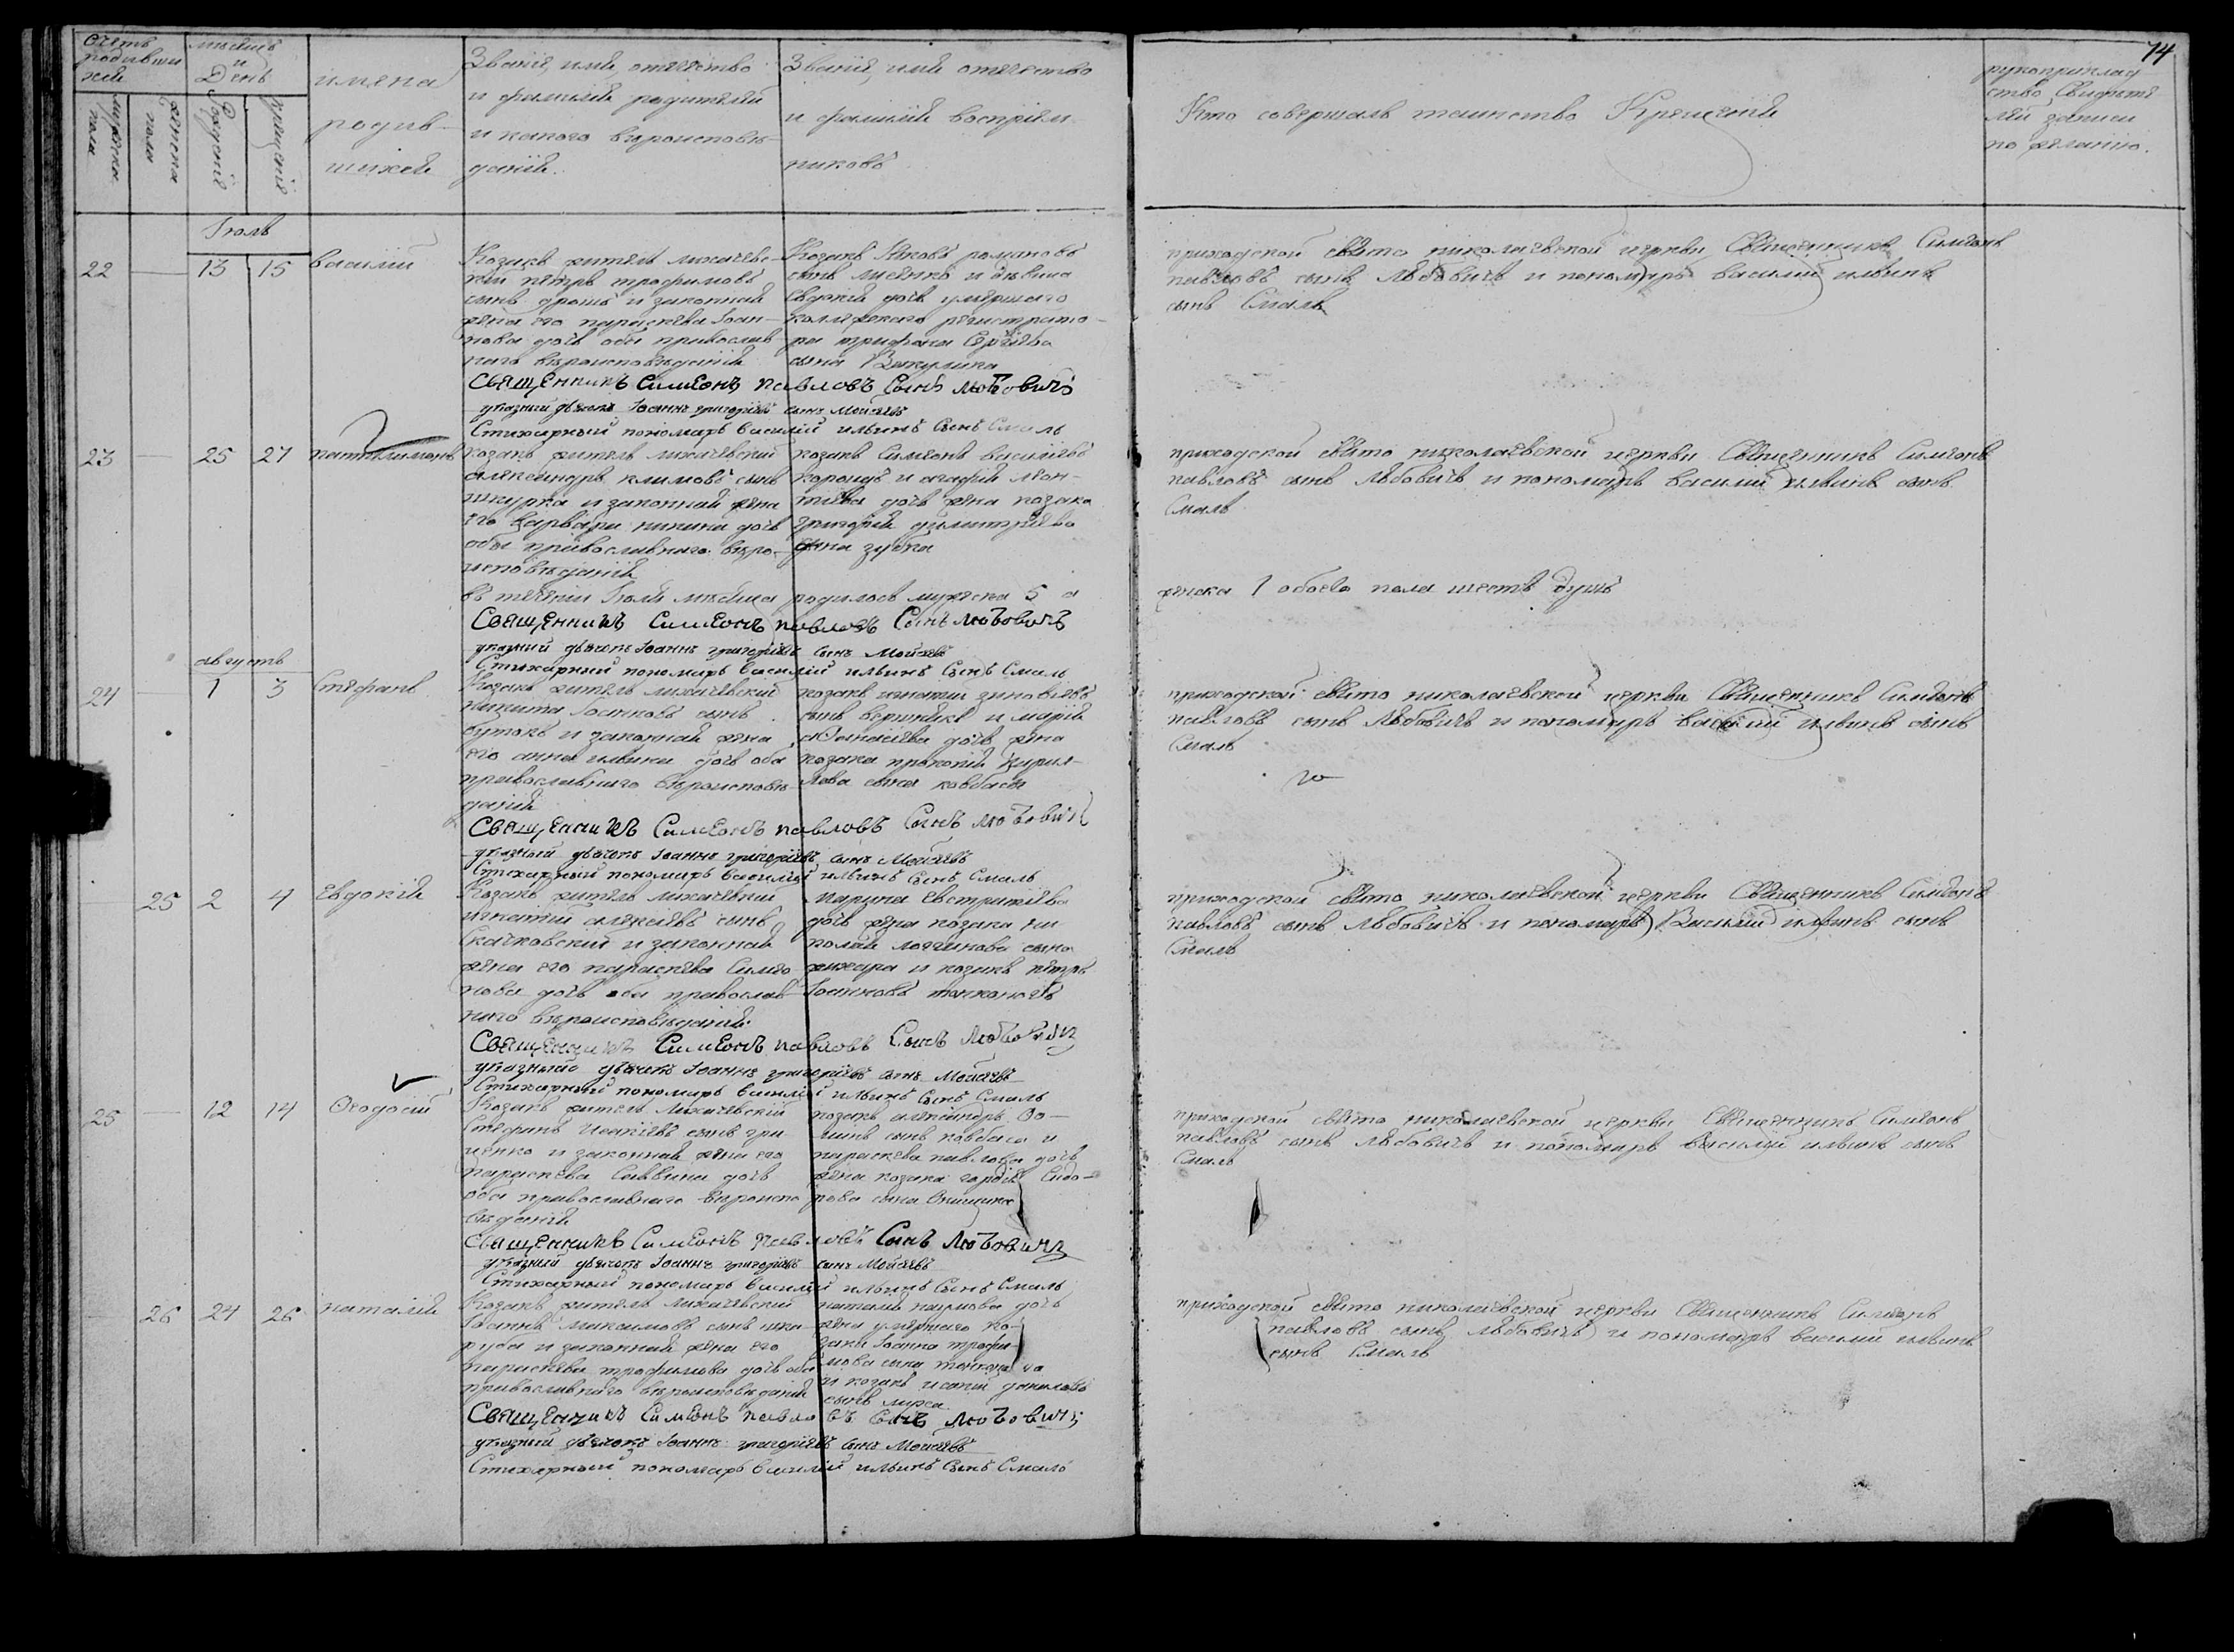 74
Счетъ родившихся
мѣсяцъ и День
имена родившихся
Званіе, имя, отчество и фамилія родителей и какого вѣроисповѣданія.
Званіе, имя отчество и фамилія воспріемниковъ
Кто совершалъ таинство Крещенія
рукоприкладство Свидѣтелей записи по желанію.
мужеска пола
женска пола
Рожденіе
Крещеніе
Іюль
22 — 13 15 василій
Козакъ житель лихачевс-
кій петръ трофимовъ
сынъ и законная
жена его параскева Іоан-
нова дочь оба православ
наго вѣроисповѣданія
Козакъ Яковъ романовъ
сынъ и дѣвица
Евдокія дочь умершаго
коллежскаго регистрато-
ра трифона Сергіева
сына
приходской свято николаевской церкви Священникъ Симеонъ
павловъ сынъ Любовичъ и пономарь василій ильинъ
сынъ Смаль
Священникъ Симеонъ павловъ Сынъ Любовичъ
указный дьячокъ Іоаннъ григоріевъ сынъ Мойсеевъ
Стихарный пономарь василій ильинъ Сынъ Смаль
23 — 25 27 пантелимонъ
козакъ житель лихачевскій
александръ климовъ сынъ
шкурка и законная жена
его варвара никина дочь
оба православнаго вѣро-
исповѣданія
козакъ Симеонъ василіевъ
и агафія леон-
тіева дочь жена козака
григорія димитріева
сына зубка
приходской свято николаевской церкви Священникъ Симеонъ
павловъ сынъ Любовичъ и пономарь василій ильинъ сынъ
Смаль
въ теченіи Іюля мѣсяца родилось мужеска 5 а
женска 1 обоего пола шесть душъ
Священникъ Симеонъ павловъ Сынъ Любовичъ
указный дьячокъ Іоаннъ григоріевъ сынъ Мойсеевъ
Стихарный пономарь василій ильинъ Сынъ Смаль
августъ
24 — 1 3 Стефанъ
Козакъ житель лихачевскій
никита Іоанновъ сынъ
бутокъ и законная жена
его анна ильина дочь оба
православнаго вѣроисповѣ-
данія
козакъ игнатій зиновіевъ
сынъ и марія
аѳанасіева дочь жена
козака прокопія кирил-
лова сына ковбасы
приходской свято николаевской церкви Священникъ Симеонъ
павловъ сынъ Любовичъ и пономарь василій ильинъ сынъ
Смаль
Священникъ Симеонъ павловъ Сынъ Любовичъ
указный дьячокъ Іоаннъ григоріевъ сынъ Мойсеевъ
Стихарный пономарь василій ильинъ Сынъ Смаль
25 2 4 Евдокія
Козакъ житель лихачевскій
игнатій алексіевъ сынъ
Скачковскій и законная
жена его параскева Симео-
нова дочь оба православ-
наго вѣроисповѣданія
марина Евстратіева
дочь жена козака ни
колая логгинова сына
и козакъ петръ
Іоанновъ тонконогъ
приходской свято николаевской церкви Священникъ Симеонъ
павловъ сынъ Любовичъ и пономарь Василій ильинъ сынъ
Смаль
Священникъ Симеонъ павловъ Сынъ Любовичъ
указный дьячокъ Іоаннъ григоріевъ сынъ Мойсеевъ
Стихарный пономарь василій ильинъ Сынъ Смаль
25 — 12 14 Ѳеодосій
Козакъ житель Лихачевскій
Стефанъ сынъ гри
ценко и законная жена его
параскева Саввина дочь
оба православнаго вѣроиспо
вѣданія
козакъ александръ Ѳо-
минъ сынъ ковбаса и
параскева павлова дочь
жена козака гордія Сидо-
рова сына Онищика
приходской свято николаевской церкви Священникъ Симеонъ
павловъ сынъ Любовичъ и пономарь василій ильинъ сынъ
Смаль
Священникъ Симеонъ павловъ Сынъ Любовичъ
указный дьячокъ Іоаннъ григоріевъ сынъ Мойсеевъ
Стихарный пономарь василій ильинъ Сынъ Смаль
26 24 26 наталія
Козакъ житель лихачевскій
Іоаннъ Максимовъ сынъ шка-
руба и законная жена его
параскева трофимова дочь оба
православнаго вѣроисповѣданія
наталія наумова дочь
жена умершаго ко-
зака Іоанна трофи-
мова сына
и козакъ исаія даниловъ
сынъ
приходской свято николаевской церкви Священникъ Симеонъ
павловъ сынъ Любовичъ и пономарь василій ильинъ
сынъ Смаль
Священникъ Симеонъ павловъ сынъ Любовичъ
указный дьячокъ Іоаннъ григоріевъ сынъ Мойсеевъ
Стихарный пономарь василій ильинъ Сынъ Смаль